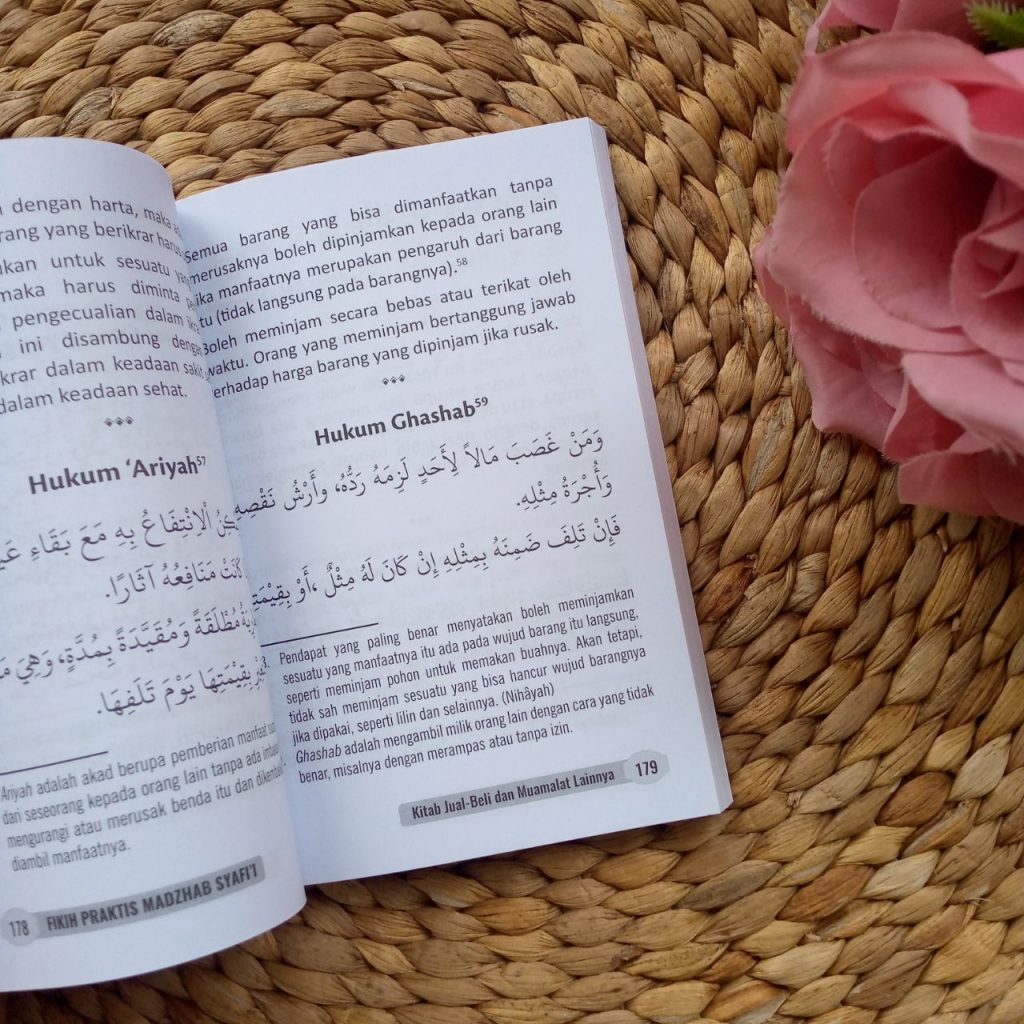 dengan harta, maka
rang yang berikrar harus
kan untuk sesuatu yang
maka harus diminta
pengecualian dalam
ini disambung dengan
krar dalam keadaan sakit
dalam keadaan sehat.
Hukum ‘Ariyah57
الْاِنْتِفَاعُ بِهِ مَعَ بَقَاءِ
كَانَتْ مَنَافِعُهُ آثَارًا.
مُطْلَقَةً وَمُقَيَّدَةً بِمُدَّةٍ، وَهِيَ
بِقِيْمَتِهَا يَوْمَ تَلَفِهَا.
Ariyah adalah akad berupa pemberian manfaat
dari seseorang kepada orang lain tanpa ada
mengurangi atau merusak benda itu dan
diambil manfaatnya.
178 FIKIH PRAKTIS MADZHAB SYAFI'I
Semua barang yang bisa dimanfaatkan tanpa
merusaknya boleh dipinjamkan kepada orang lain
jika manfaatnya merupakan pengaruh dari barang
itu (tidak langsung pada barangnya).58
Boleh meminjam secara bebas atau terikat oleh
waktu. Orang yang meminjam bertanggung jawab
terhadap harga barang yang dipinjam jika rusak.
Hukum Ghashab59
وَمَنْ غَصَبَ مَالاً لِأَحَدٍ لَزِمَهُ رَدُّهُ، وأَرْشُ نَقْصِهِ
وَأُجْرَةُ مِثْلِهِ.
فَإِنْ تَلِفَ ضَمِنَهُ بِمِثْلِهِ إِنْ كَانَ لَهُ مِثْلٌ ،أَوْ بِقِيْمَتِهِ
Pendapat yang paling benar menyatakan boleh meminjamkan
sesuatu yang manfaatnya itu ada pada wujud barang itu langsung,
seperti meminjam pohon untuk memakan buahnya. Akan tetapi,
tidak sah meminjam sesuatu yang bisa hancur wujud barangnya
jika dipakai, seperti lilin dan selainnya. (Nihâyah)
Ghashab adalah mengambil milik orang lain dengan cara yang tidak
benar, misalnya dengan merampas atau tanpa izin.
Kitab Jual-Beli dan Muamalat Lainnya 179